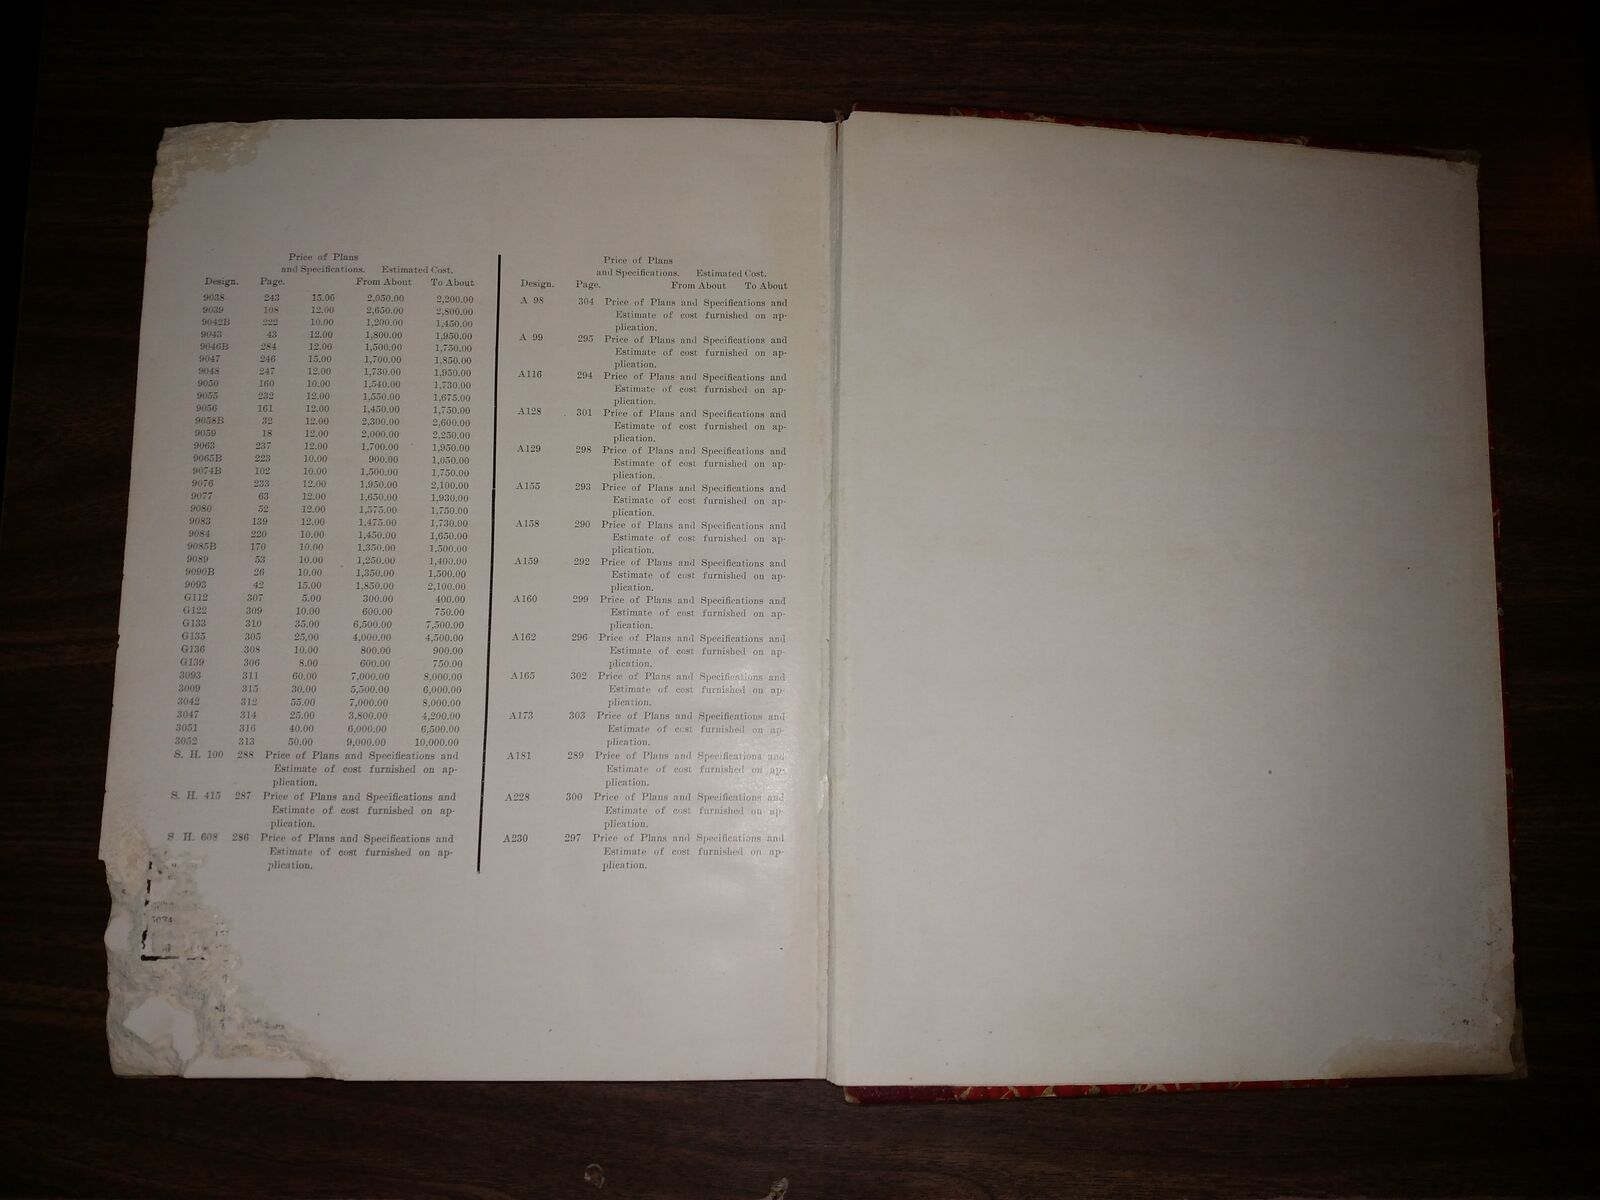 Price of Plans
and Specifications. Estimated Cost.
Design. Page. From About To About
9038 243 15.00 2,050.00 2,200.00
9039 108 12.00 2,650.00 2,800.00
9042B 222 10.00 1,200.00 1,450.00
9043 43 12.00 1,800.00 1,950.00
9046B 284 12.00 1,500.00 1,750.00
9047 246 15.00 1,700.00 1,850.00
9048 247 12.00 1,730.00 1,950.00
9050 160 10.00 1,540.00 1,730.00
9055 232 12.00 1,550.00 1,675.00
9056 161 12.00 1,450.00 1,750.00
9058B 32 12.00 2,300.00 2,600.00
9059 18 12.00 2,000.00 2,250.00
9063 237 12.00 1,700.00 1,950.00
9065B 223 10.00 900.00 1,050.00
9074B 102 10.00 1,500.00 1,750.00
9076 233 12.00 1,950.00 2,100.00
9077 63 12.00 1,650.00 1,930.00
9080 52 12.00 1,575.00 1,750.00
9083 139 12.00 1,475.00 1,730.00
9084 220 10.00 1,450.00 1,650.00
9085B 170 10.00 1,350.00 1,500.00
9089 53 10.00 1,250.00 1,400.00
9090B 26 10.00 1,350.00 1,500.00
9093 42 15.00 1,850.00 2,100.00
G112 307 5.00 300.00 400.00
G122 309 10.00 600.00 750.00
G133 310 35.00 6,500.00 7,500.00
G135 305 25.00 4,000.00 4,500.00
G136 308 10.00 800.00 900.00
G139 306 8.00 600.00 750.00
3093 311 60.00 7,000.00 8,000.00
3009 315 30.00 5,500.00 6,000.00
3042 312 55.00 7,000.00 8,000.00
3047 314 25.00 3,800.00 4,200.00
3051 316 40.00 6,000.00 6,500.00
3052 313 50.00 9,000.00 10,000.00
S. H. 100 288 Price of Plans and Specifications and
Estimate of cost furnished on ap-
plication.
S. H. 415 287 Price of Plans and Specifications and
Estimate of cost furnished on ap-
plication.
S H. 608 286 Price of Plans and Specifications and
Estimate of cost furnished on ap-
plication.
Price of Plans
and Specifications. Estimated Cost.
Design. Page. From About To About
A 98 304 Price of Plans and Specifications and
Estimate of cost furnished on ap-
plication.
A 99 295 Price of Plans and Specifications and
Estimate of cost furnished on ap-
plication.
A116 294 Price of Plans and Specifications and
Estimate of cost furnished on ap-
plication.
A128 301 Price of Plans and Specifications and
Estimate of cost furnished on ap-
plication.
A129 298 Price of Plans and Specifications and
Estimate of cost furnished on ap-
plication.
A155 293 Price of Plans and Specifications and
Estimate of cost furnished on ap-
plication.
A158 290 Price of Plans and Specifications and
Estimate of cost furnished on ap-
plication.
A159 292 Price of Plans and Specifications and
Estimate of cost furnished on ap-
plication.
A160 299 Price of Plans and Specifications and
Estimate of cost furnished on ap-
plication.
A162 296 Price of Plans and Specifications and
Estimate of cost furnished on ap-
plication.
A165 302 Price of Plans and Specifications and
Estimate of cost furnished on ap-
plication.
A173 303 Price of Plans and Specifications and
Estimate of cost furnished on ap-
plication.
A181 289 Price of Plans and Specifications and
Estimate of cost furnished on ap-
plication.
A228 300 Price of Plans and Specifications and
Estimate of cost furnished on ap-
plication.
A230 297 Price of Plans and Specifications and
Estimate of cost furnished on ap-
plication.